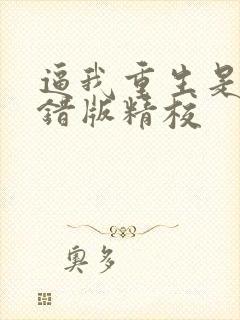 逼我重生是
错版精校
奥多